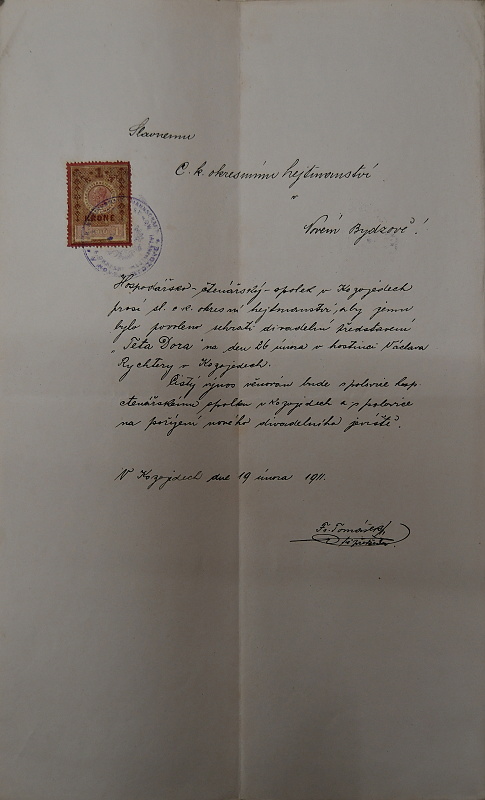 Slavnému
C. k. okresnímu hejtmanství
v
Novém Bydžově!
1
KRONE
Hospodářsko-čtenářský-spolek v Kozojedech
prosí sl. c. k. okresní hejtmanství, aby jemu
bylo povoleno sehráti divadelní představení
"Teta Dora" na den 26 února v hostinci Václava
Rychtery v Kozojedech.
Čistý výnos věnován bude s polovice hosp.
čtenářskému spolku v Kozojedech a s polovice
na pořízení nového divadelního jeviště.
V Kozojedech dne 19 února 1911.
Fr. Tomášek